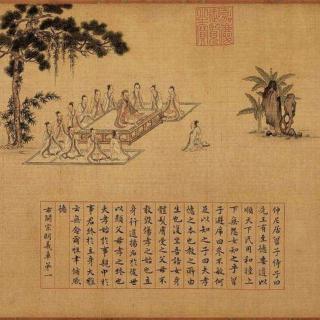 仲尼居曾子侍子曰
先王有至德要道以
順天下民用和睦上
下無怨女知之乎曾
子避席曰參不敏何
足以知之子曰夫孝
德之本也教之所由
生也復坐吾語女身
體髮膚受之父母不
敢毀傷孝之始也立
身行道揚名於後世
以顯父母孝之終也
夫孝始於事親中於
事君終於立身大雅
云無念爾祖聿脩厥
德
右開宗明義章第一